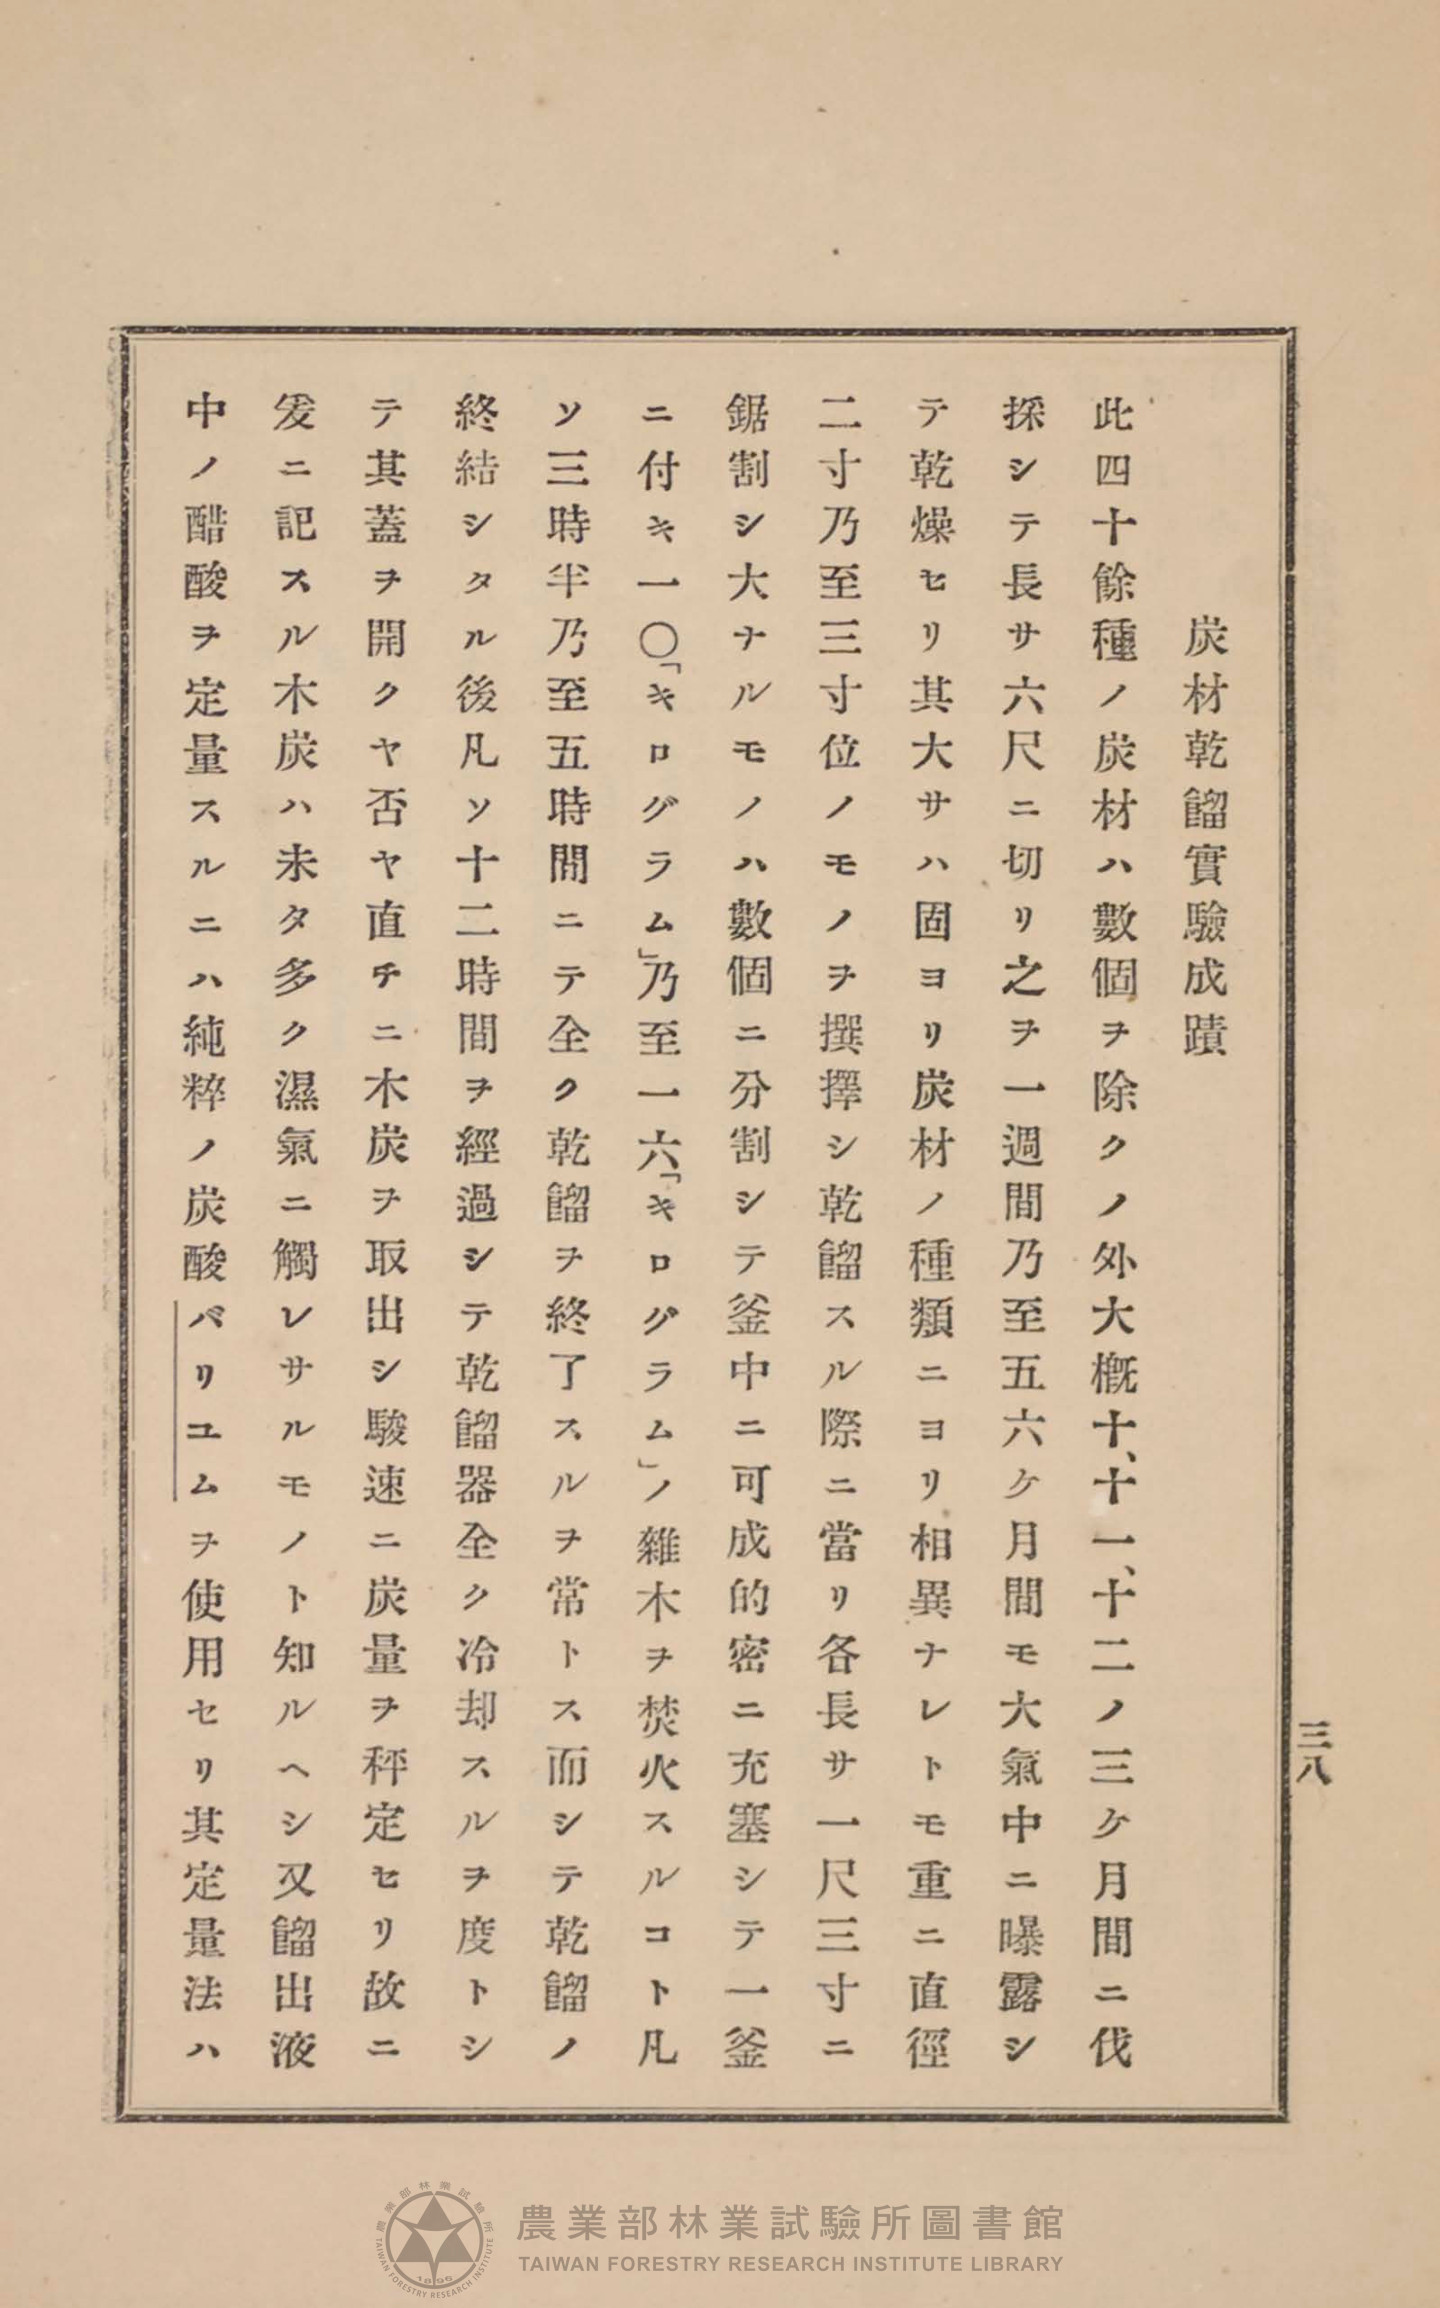 三八
炭材乾餾實驗成蹟
此四十餘種ノ炭材ハ數個ヲ除クノ外大概十、十一、十二ノ三ケ月間ニ伐
採シテ長サ六尺ニ切リ之ヲ一週間乃至五六ケ月間モ大氣中ニ曝露シ
テ乾燥セリ其大サハ固ヨリ炭材ノ種類ニヨリ相異ナレトモ重ニ直徑
二寸乃至三寸位ノモノヲ撰擇シ乾餾スル際ニ當リ各長サ一尺三寸ニ
鋸割シ大ナルモノハ數個ニ分割シテ釜中ニ可成的密ニ充塞シテ一釜
ニ付キ一〇「キログラム」乃至一六「キログラム」ノ雜木ヲ焚火スルコト凡
ソ三時半乃至五時間ニテ全ク乾餾ヲ終了スルヲ常トス而シテ乾餾ノ
終結シタル後凡ソ十二時間ヲ經過シテ乾餾器全ク冷却スルヲ度トシ
テ其蓋ヲ開クヤ否ヤ直チニ木炭ヲ取出シ駿速ニ炭量ヲ秤定セリ故ニ
爰ニ記スル木炭ハ未タ多ク濕氣ニ觸レサルモノト知ルヘシ又餾出液
中ノ醋酸ヲ定量スルニハ純粹ノ炭酸バリユムヲ使用セリ其定量法ハ
農業部林業試驗所圖書館
TAIWAN FORESTRY RESEARCH INSTITUTE LIBRARY
農業部林業試驗所
TAIWAN FORESTRY RESEARCH INSTITUTE
1896